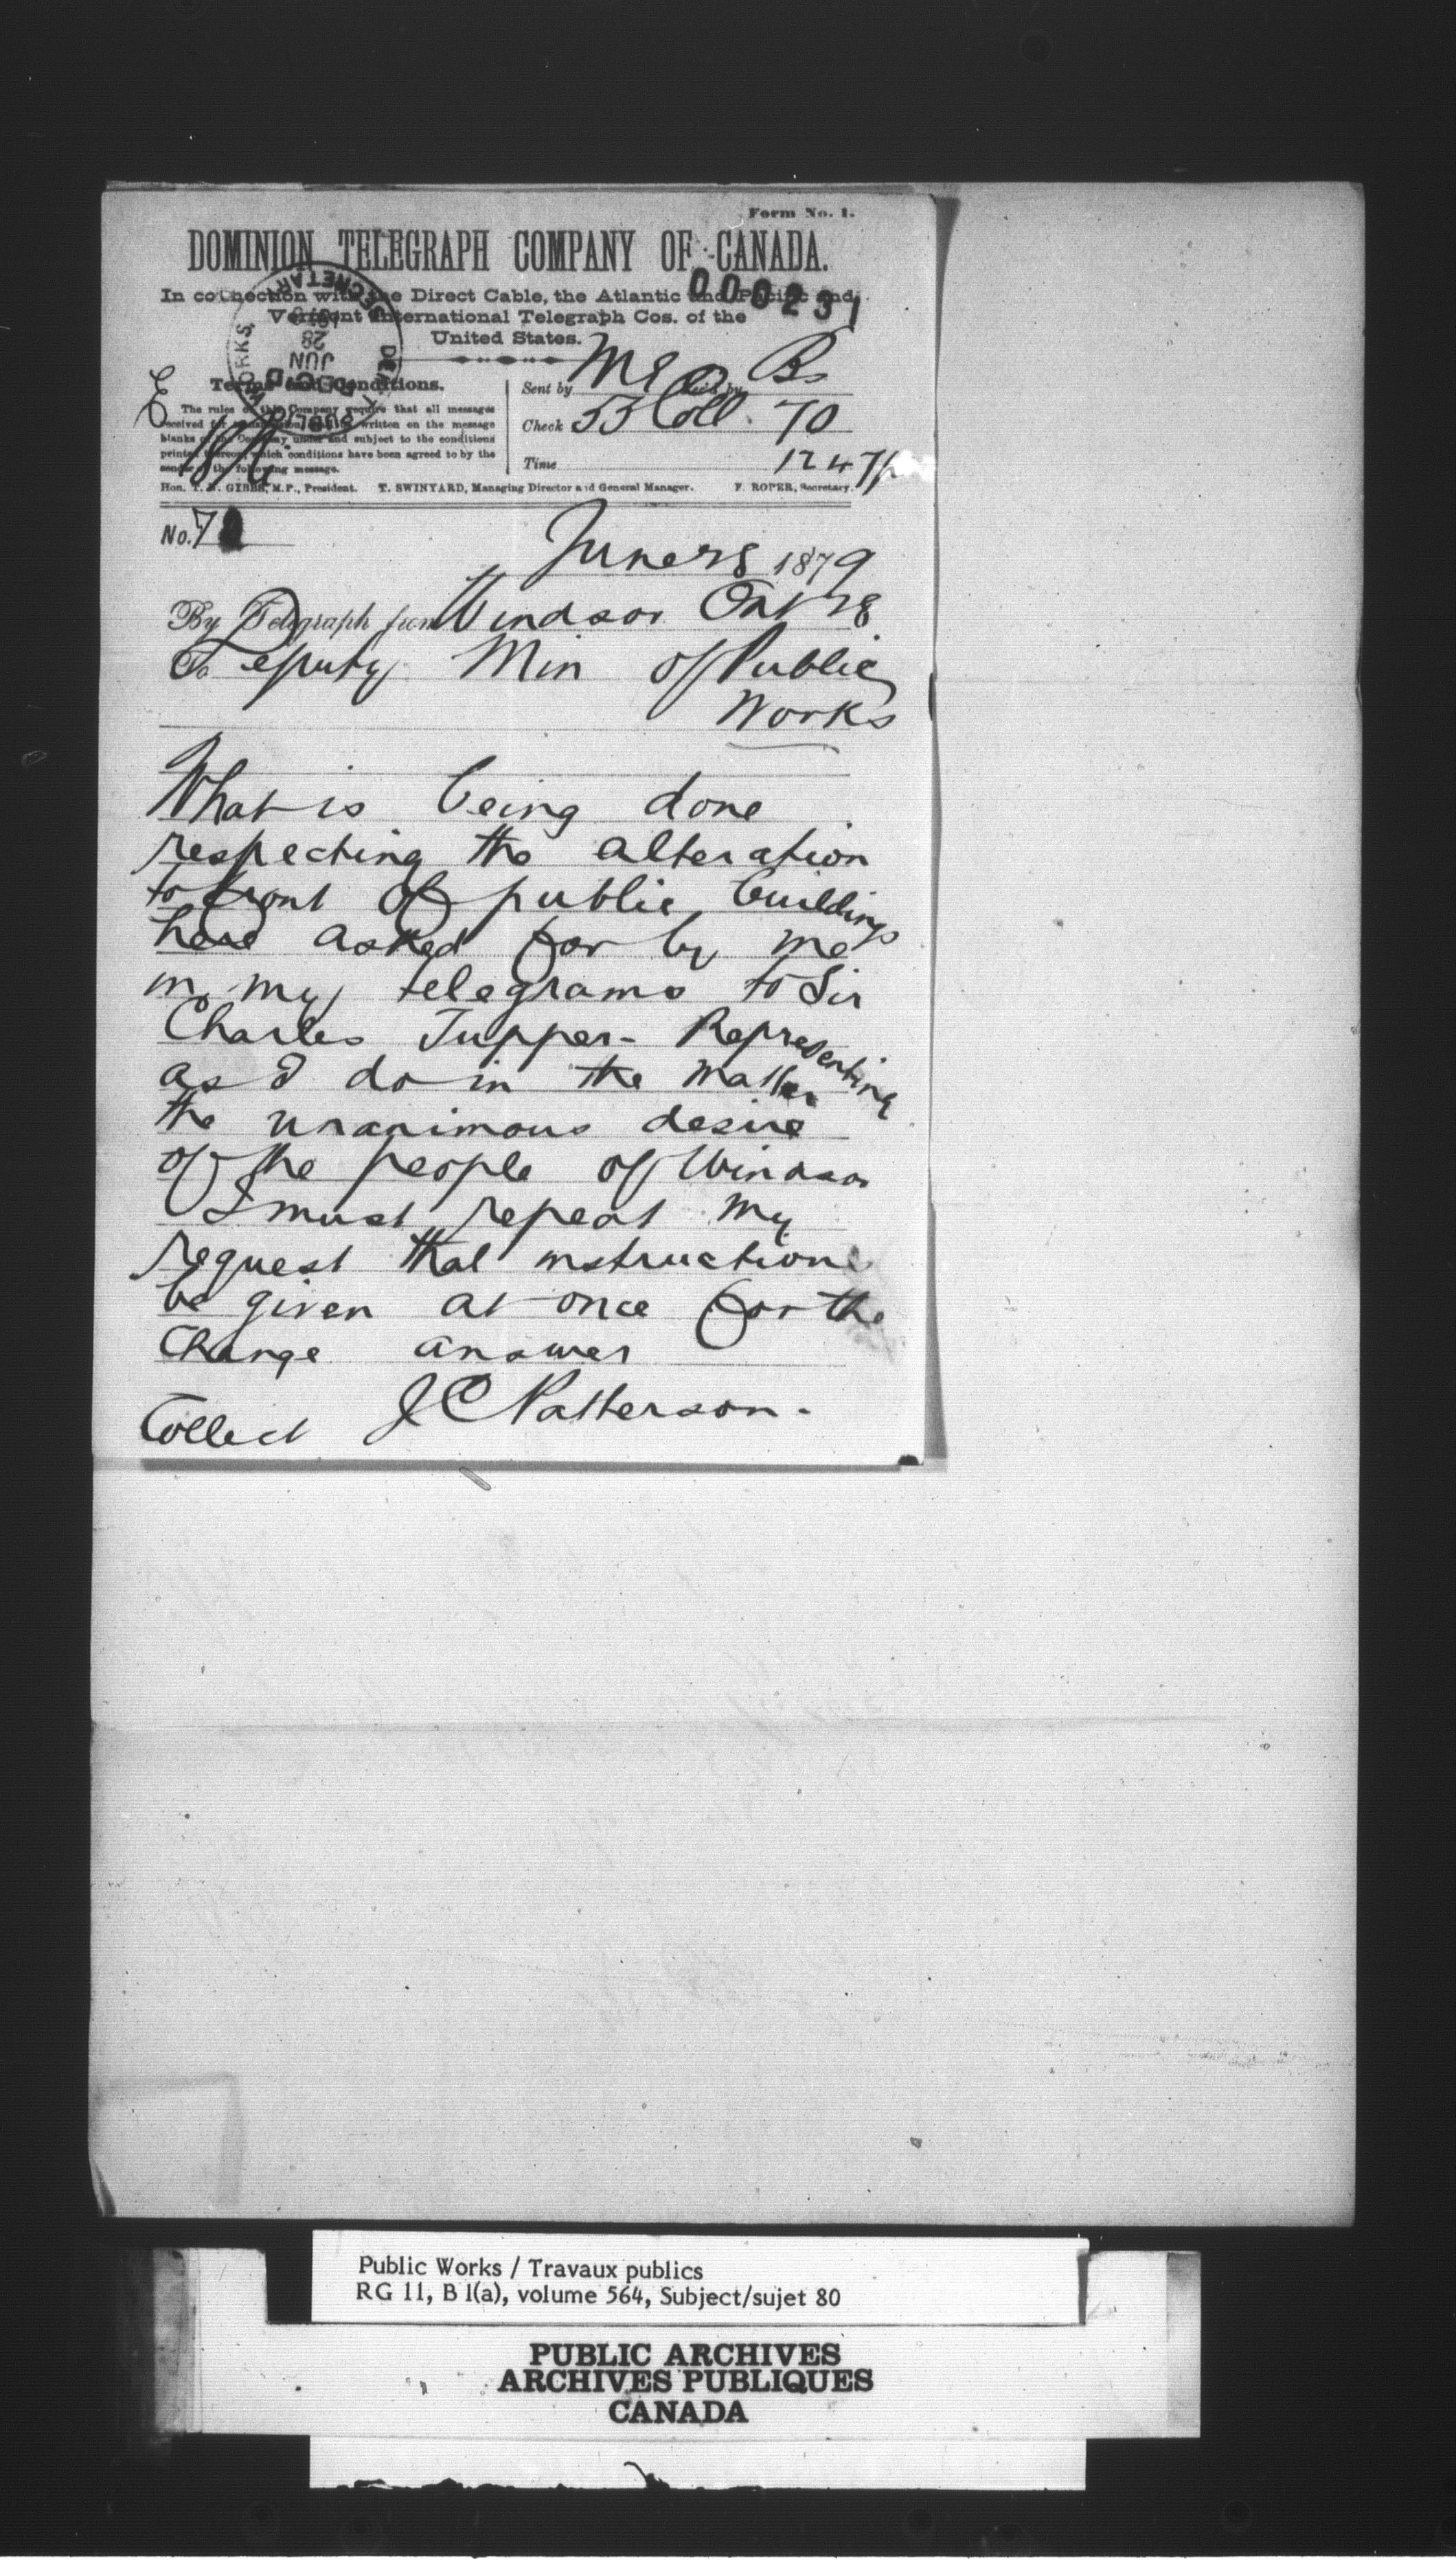 Form No. 1.
DOMINION TELEGRAPH COMPANY OF CANADA.
000231
In connection with the Direct Cable, the Atlantic and Pacific and
Vermont International Telegraph Cos. of the
United States.
SECRETARY DEPT PUBLIC WORKS
REC'D
JUN
28
1879
Terms and Conditions.
The rules of this Company require that all messages
received for transmission, shall be written on the message
blanks of the Company under and subject to the conditions
printed thereon, which conditions have been agreed to by the
sender of the following message.
Sent by Rec'd by Bs
Check 53 Coll. 70
Time 1247p
Hon. T. N. GIBBS, M.P., President. T. SWINYARD, Managing Director and General Manager. F. ROPER, Secretary.
No.
June 28 1879
By Telegraph from Windsor Ont 28
To Deputy Min of Public
Works
What is being done
respecting the alteration
to front of public buildings
here asked for by me
in my telegrams to Sir
Charles Tupper - Representing
as I do in the matter
the unanimous desire
of the people of Windsor
I must repeat my
request that instructions
be given at once for the
Change answer
Collect J C Patterson.
Public Works / Travaux publics
RG 11, B 1(a), volume 564, Subject/sujet 80
PUBLIC ARCHIVES
ARCHIVES PUBLIQUES
CANADA